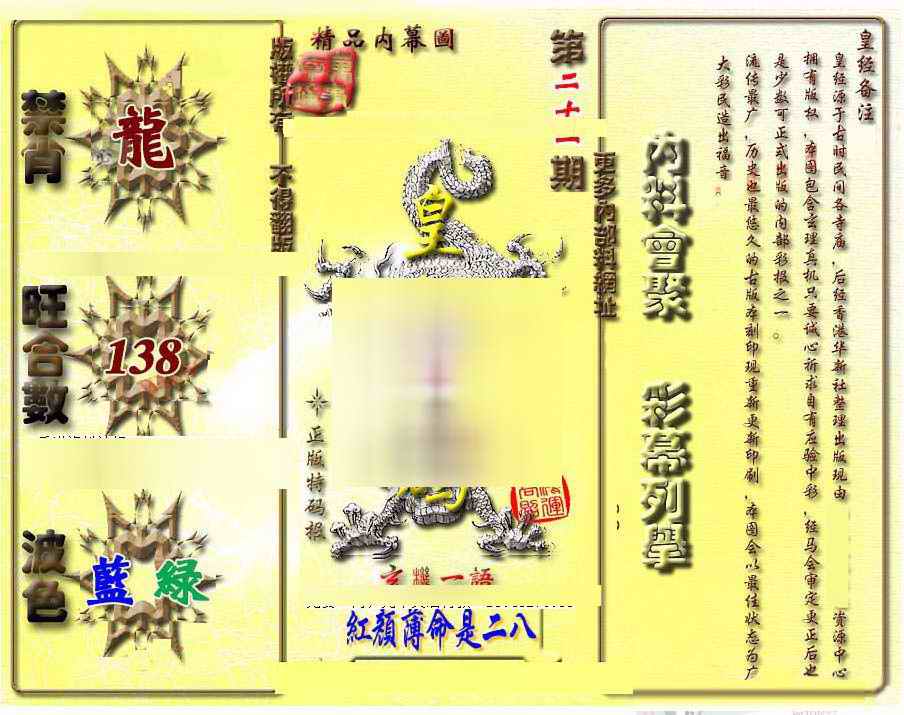 精品內幕圖
第二十一期
版權所有 不得翻版
更多內部料網址
禁肖
龍
旺合數
138
波色
藍 綠
皇
正版特码报
玄機一語
紅顏薄命是二八
內料會聚 彩幕列舉
皇经备注
皇经源于古时民间各寺庙，后经香港华新社整理出版现由 资源中心
拥有版权，本图包含玄理真机只要诚心祈求自有应验中彩，经马会审定更正后也
是少数可正式出版的内部彩报之一。
流传最广，历史也最悠久的古版本刻印现重新更新印刷，本图会以最佳状态为广
大彩民造出福音